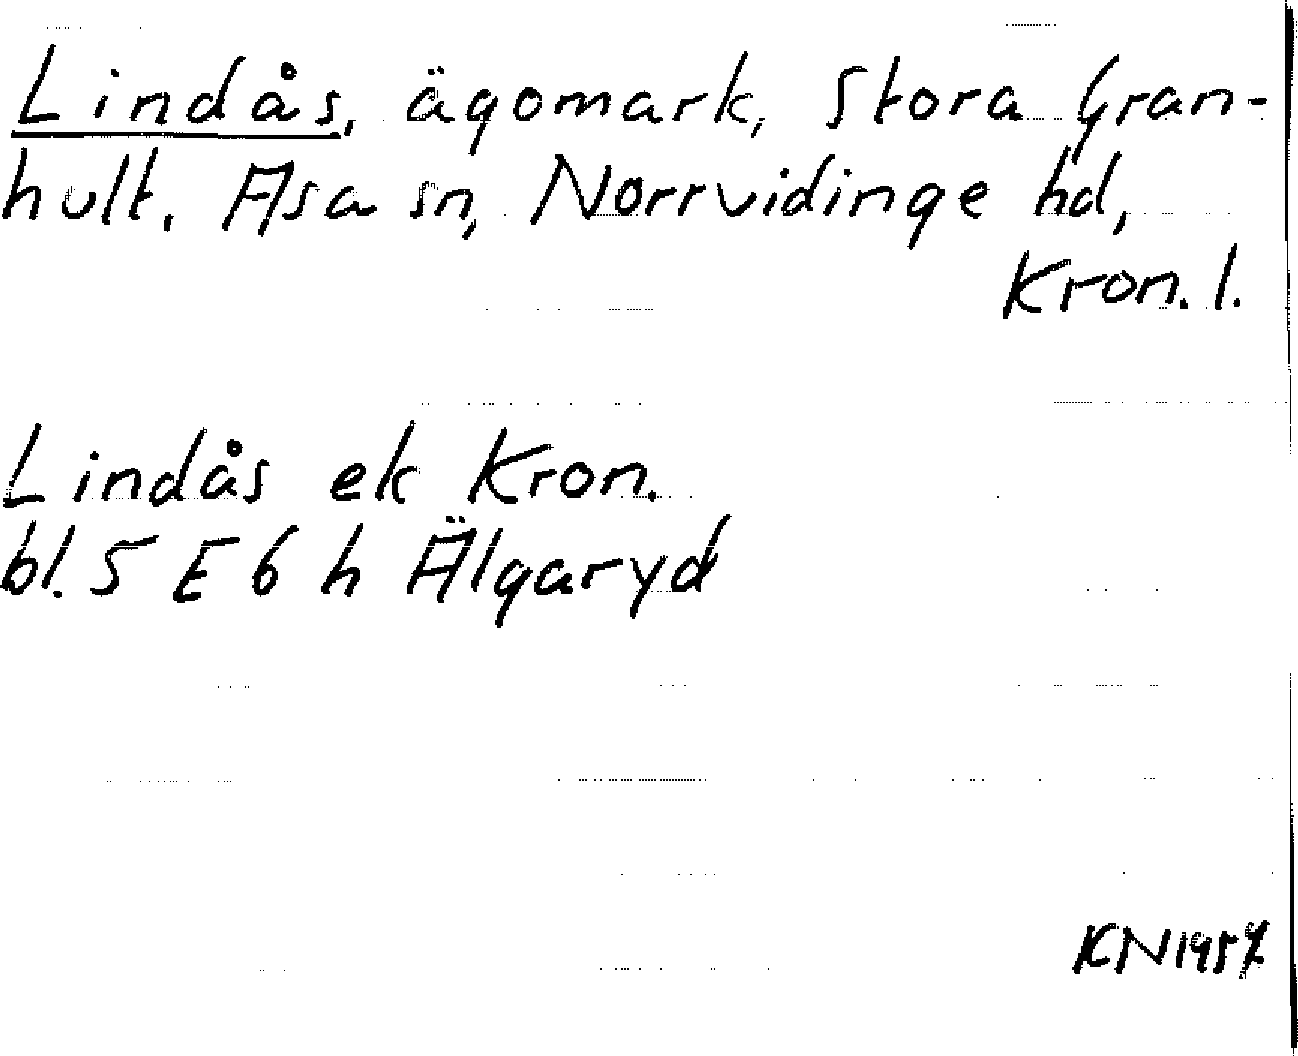 Lindås, ägomark, Stora Gran-
hult. Asa sn, Norrvidinge hd,
Kron. l.
Lindås ek Kron.
bl. 5 E 6 h Älgaryd
KN